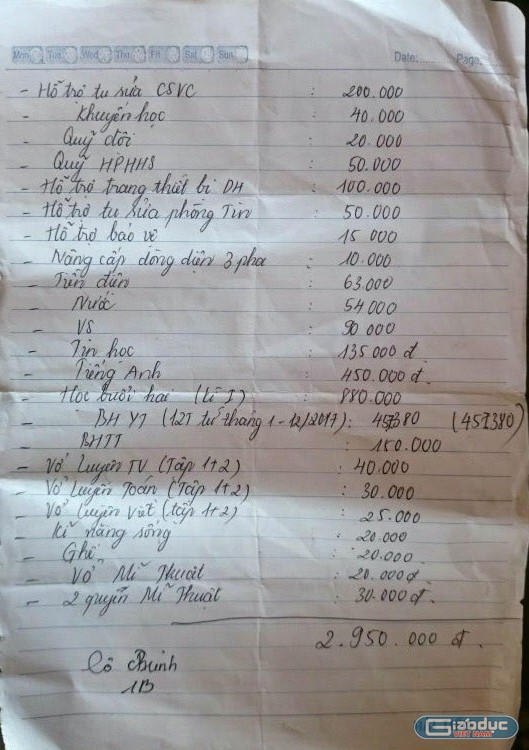 Mon Tue Wed Thu Fri Sat Sun Date: Page:
- Hỗ trợ tu sửa CSVC : 200.000
- Khuyến học : 40.000
- Quỹ đội : 20.000
- Quỹ HPHHS : 50.000
- Hỗ trợ trang thiết bị DH : 100.000
- Hỗ trợ tu sửa phòng Tin : 50.000
- Hỗ trợ bảo vệ : 15 000
- Nâng cấp dòng điện 3 pha : 10.000
- Tiền điện : 63.000
- Nước : 54 000
- VS : 90 000
- Tin học : 135 000 đ
- Tiếng Anh : 450.000 đ
- Học buổi hai (Kì I) : 880.000
- BH YT (12T từ tháng 1 - 12/2017) : 457380 (457380)
- BHTT : 150.000
- Vở luyện TV (Tập 1+2) : 40.000
- Vở luyện Toán (Tập 1+2) : 30.000
- Vở luyện Viết (tập 1+2) : 25.000
- Kĩ năng sống : 20.000
- Ghế : 20.000
- Vở Mĩ Thuật : 20.000đ
- 2 quyển Mĩ Thuật : 30.000đ
2.950.000 đ.
Cô
1B
Giáo dục
VIỆT NAM